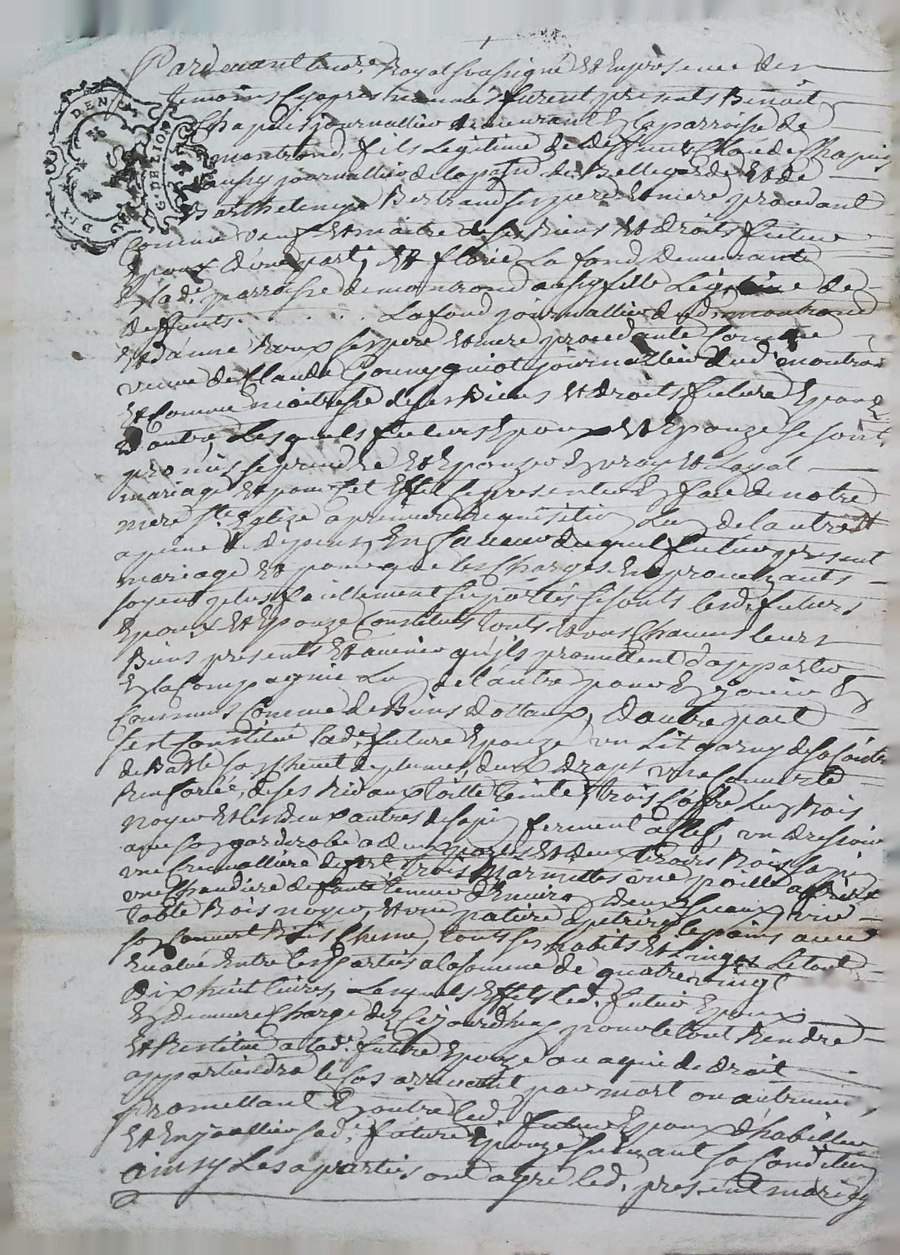 Pardevant Royal soussigné Et En presence des
temoins Cy apres nommes furent presents Benoit
Chapuis journallier demeurant En la parroisse de
montrond fils Legitime de Deffunt Claude Chapuis
journallier de la paroi de Bellegarde Et de
Barthelemye Bertrand ses pere Et mere procedant
Comme veuf Et maitre de ses Biens Et Droits futur
Epoux d'une part, Et Florie La fond Demeurante
En lad. parroisse de montrond aussy fille Legitime de
deffunts . . . . . La fond journallier dud. montrond
Et d'anne Roux ses pere Et mere procedante Comme
veuve de Claude journallier dud. montrond
Et Comme maitresse de ses Biens Et droits future Epouze
D'autre Lesquels futurs Epoux Et Epouze se sont
promis se prendre Et Epouzer En vray Et Loyal
mariage Et pour cet Effet se presenter En face de notre
mere Ste Eglise a premiere requisition Lun de l'autre Et
a peine de depens, En faveur duquel futur present
mariage Et pour que les Charges En provenants
soyent plus facillement suportés se sont lesd. futurs
Epoux Et Epouze Constitués touts Et uns Chacuns leurs
Biens presents Et avenir qu'ils promettent d'apporter
En la Compagnie Lun de l'autre pour En jouir En
Communs Comme de Biens Dottaux, D'autre part
s'est Constitué lad. future Epouze un Lit garny de sa
de Balle Coisshinet de plumes, deux Draps une Couverte
de ses Rideaux toille teinte, trois Coffre Lun Bois
noyer Et les deux autres de sapin fermant a Clef, un dressoir
avec son garderobe a deux portes Et deux tiroirs Bois sapin
une Cremalliere de fer trois Marmittes une poille a frire
une Chaudiere de fonte tenant Environ Deux seaux, une
table Bois noyer, Et une patiere a petrir le pain avec
son Couvert Bois Chene, touts ses habits Et Linges Le tout
Evalué Entre les parties a la somme de quatre vingt
Dix huit Livres, Lesquels Effets led. futur Epoux
En Demeure Chargé des Cejourd'huy pour le tout Rendre
Et Restitué a lad. future Epouze ou a qui de droit
appartiendra le Cas arrivant par mort ou autrement,
Promettant En outre led. futur Epoux d'habiller
Et Enjoailler sad. future Epouze suivant sa Condition
ainsy Les parties ont agré led. present mariage
DIX DEN
G. DE LION